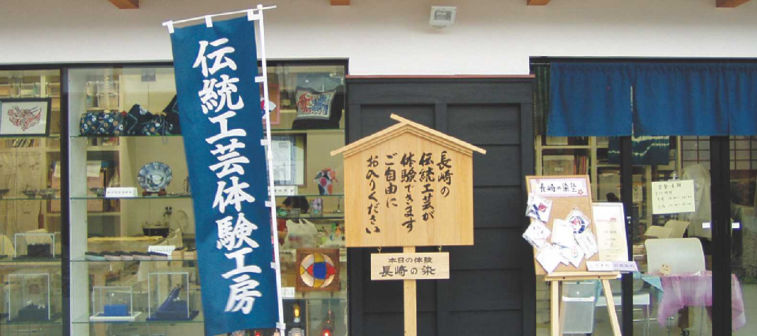 伝統工芸体験工房
長崎の
伝統工芸が
体験できます
ご自由に
お入りください
本日の体験
長崎の染
長崎の染